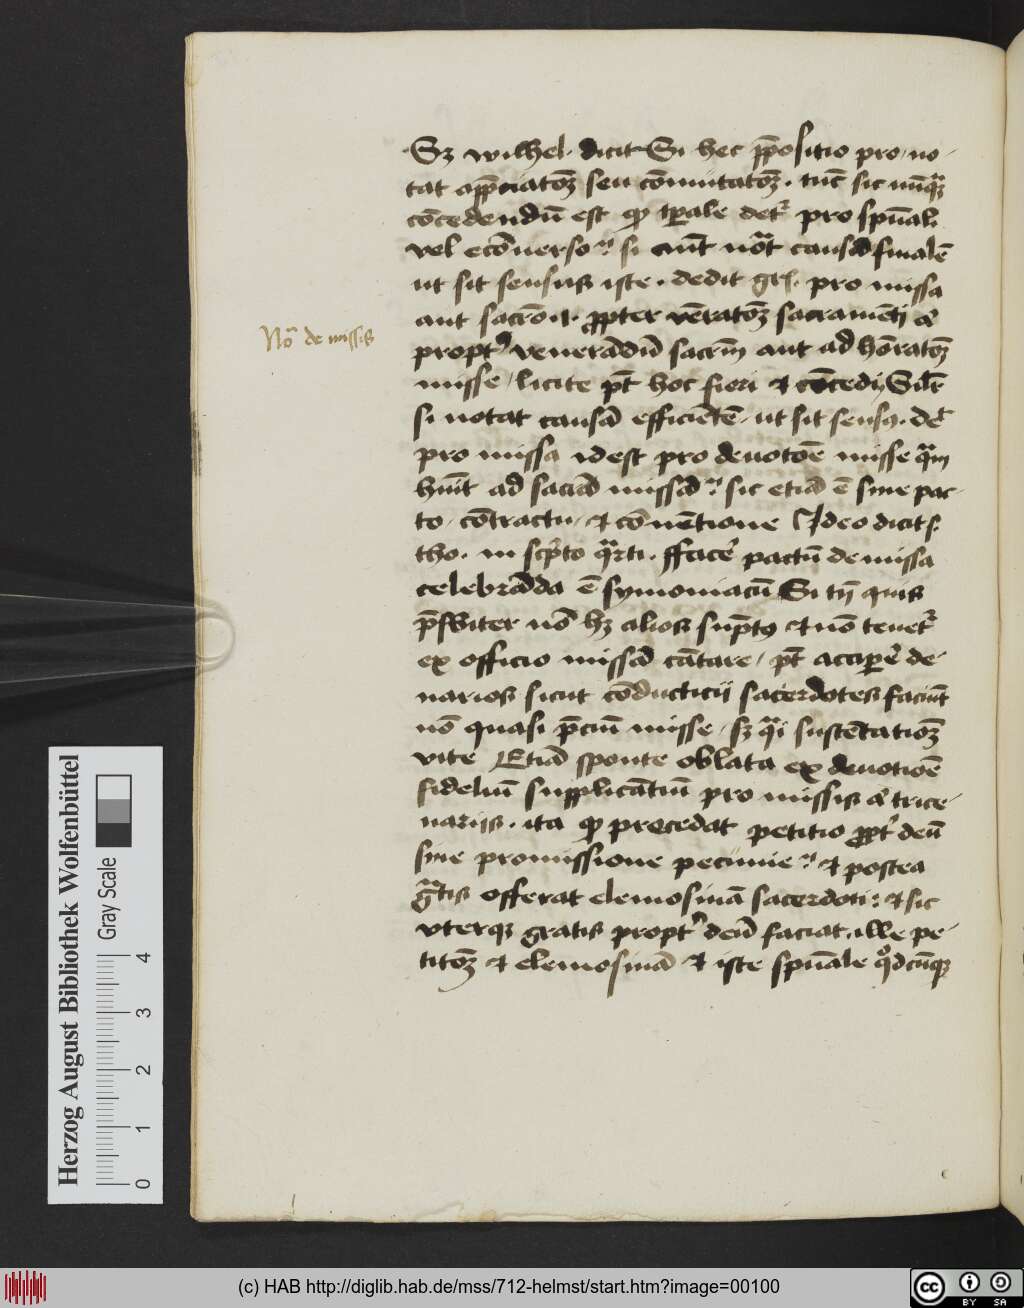 Sz wilhel. dicit Si hec p̄positio pro, no-
tat app̄ciatōz seu cōmutatōz. tūc sic nūq̄z
cōcedendū est qp tp̄ale det͛ pro spūali
vel ecōuerso : si aūt nōat causā finalē
ut sit sensus iste. dedit pro missa
aut sacrō .i. ppter vēratōz sacramēti
propt͛ venerādū sacrm̄ aut ad hōratōz
misse, licite pt̄ hoc fieri et cōcedi Silr̄
si notat causā efficiētē, ut sit sensus. det͛
pro missa id est pro deuotōē misse quam
hūit ad sacrā missā : sic etiā ē sine pac-
to, cōtractu, et cōuētione Ideo dicit s.
tho. in sc̄pto q̄rti. ffacē pactū de missa
celebrāda ē symoniacū Si tn̄ quis
p̄sbiter nō hz alios sūptus et nō tenet͛
ex officio missā cātare, pt̄ accip̄e de-
narios sicut cōducticij sacerdotes faciūt
nō quasi p̄ciū misse, sz q̄i sustētatiōz
vite Etiā sponte oblata ex deuotiōē
fideliū supplicātiū pro missis et trice-
narijs. ita qp precedat petitio ppt͛ deū
sine promissione pecunie : et postea
gr̄atis offerat elemosinā sacerdoti : et sic
vterq3 gratis propt͛ deū faciat, ille pe-
titōz et elemosinā et iste spūale qdcūq3
No de missis
Herzog August Bibliothek Wolfenbüttel
Gray Scale
0 1 2 3 4
(c) HAB http://diglib.hab.de/mss/712-helmst/start.htm?image=00100
cc BY SA